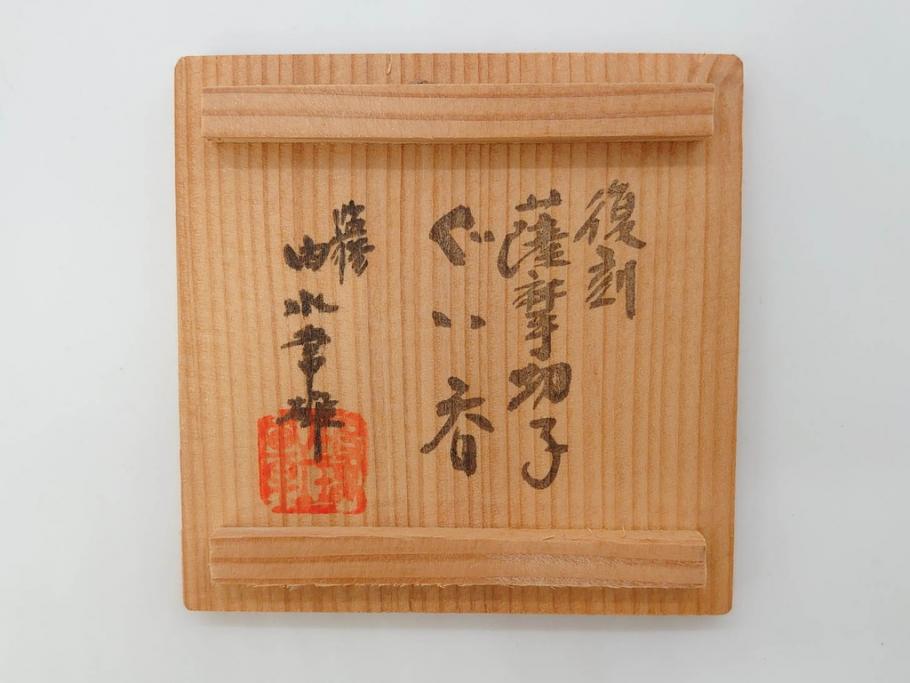 復刻
薩摩切子
ぐい呑
由水常雄